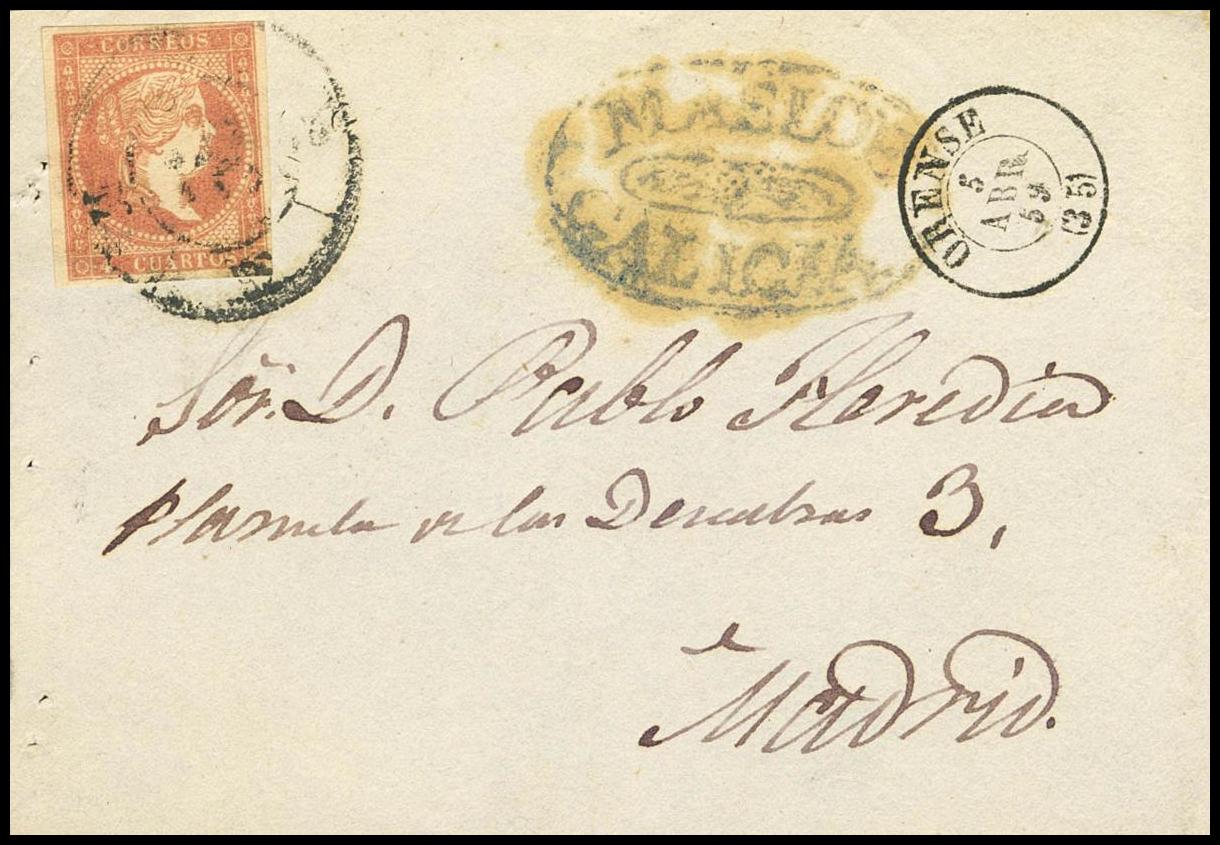 CORREOS
4 CUARTOS
MASIDE
GALICIA
ORENSE
5
ABR
59
(35)
Sör. D. Pablo Heredia
Plazuela de las Descalzas 3,
Madrid.